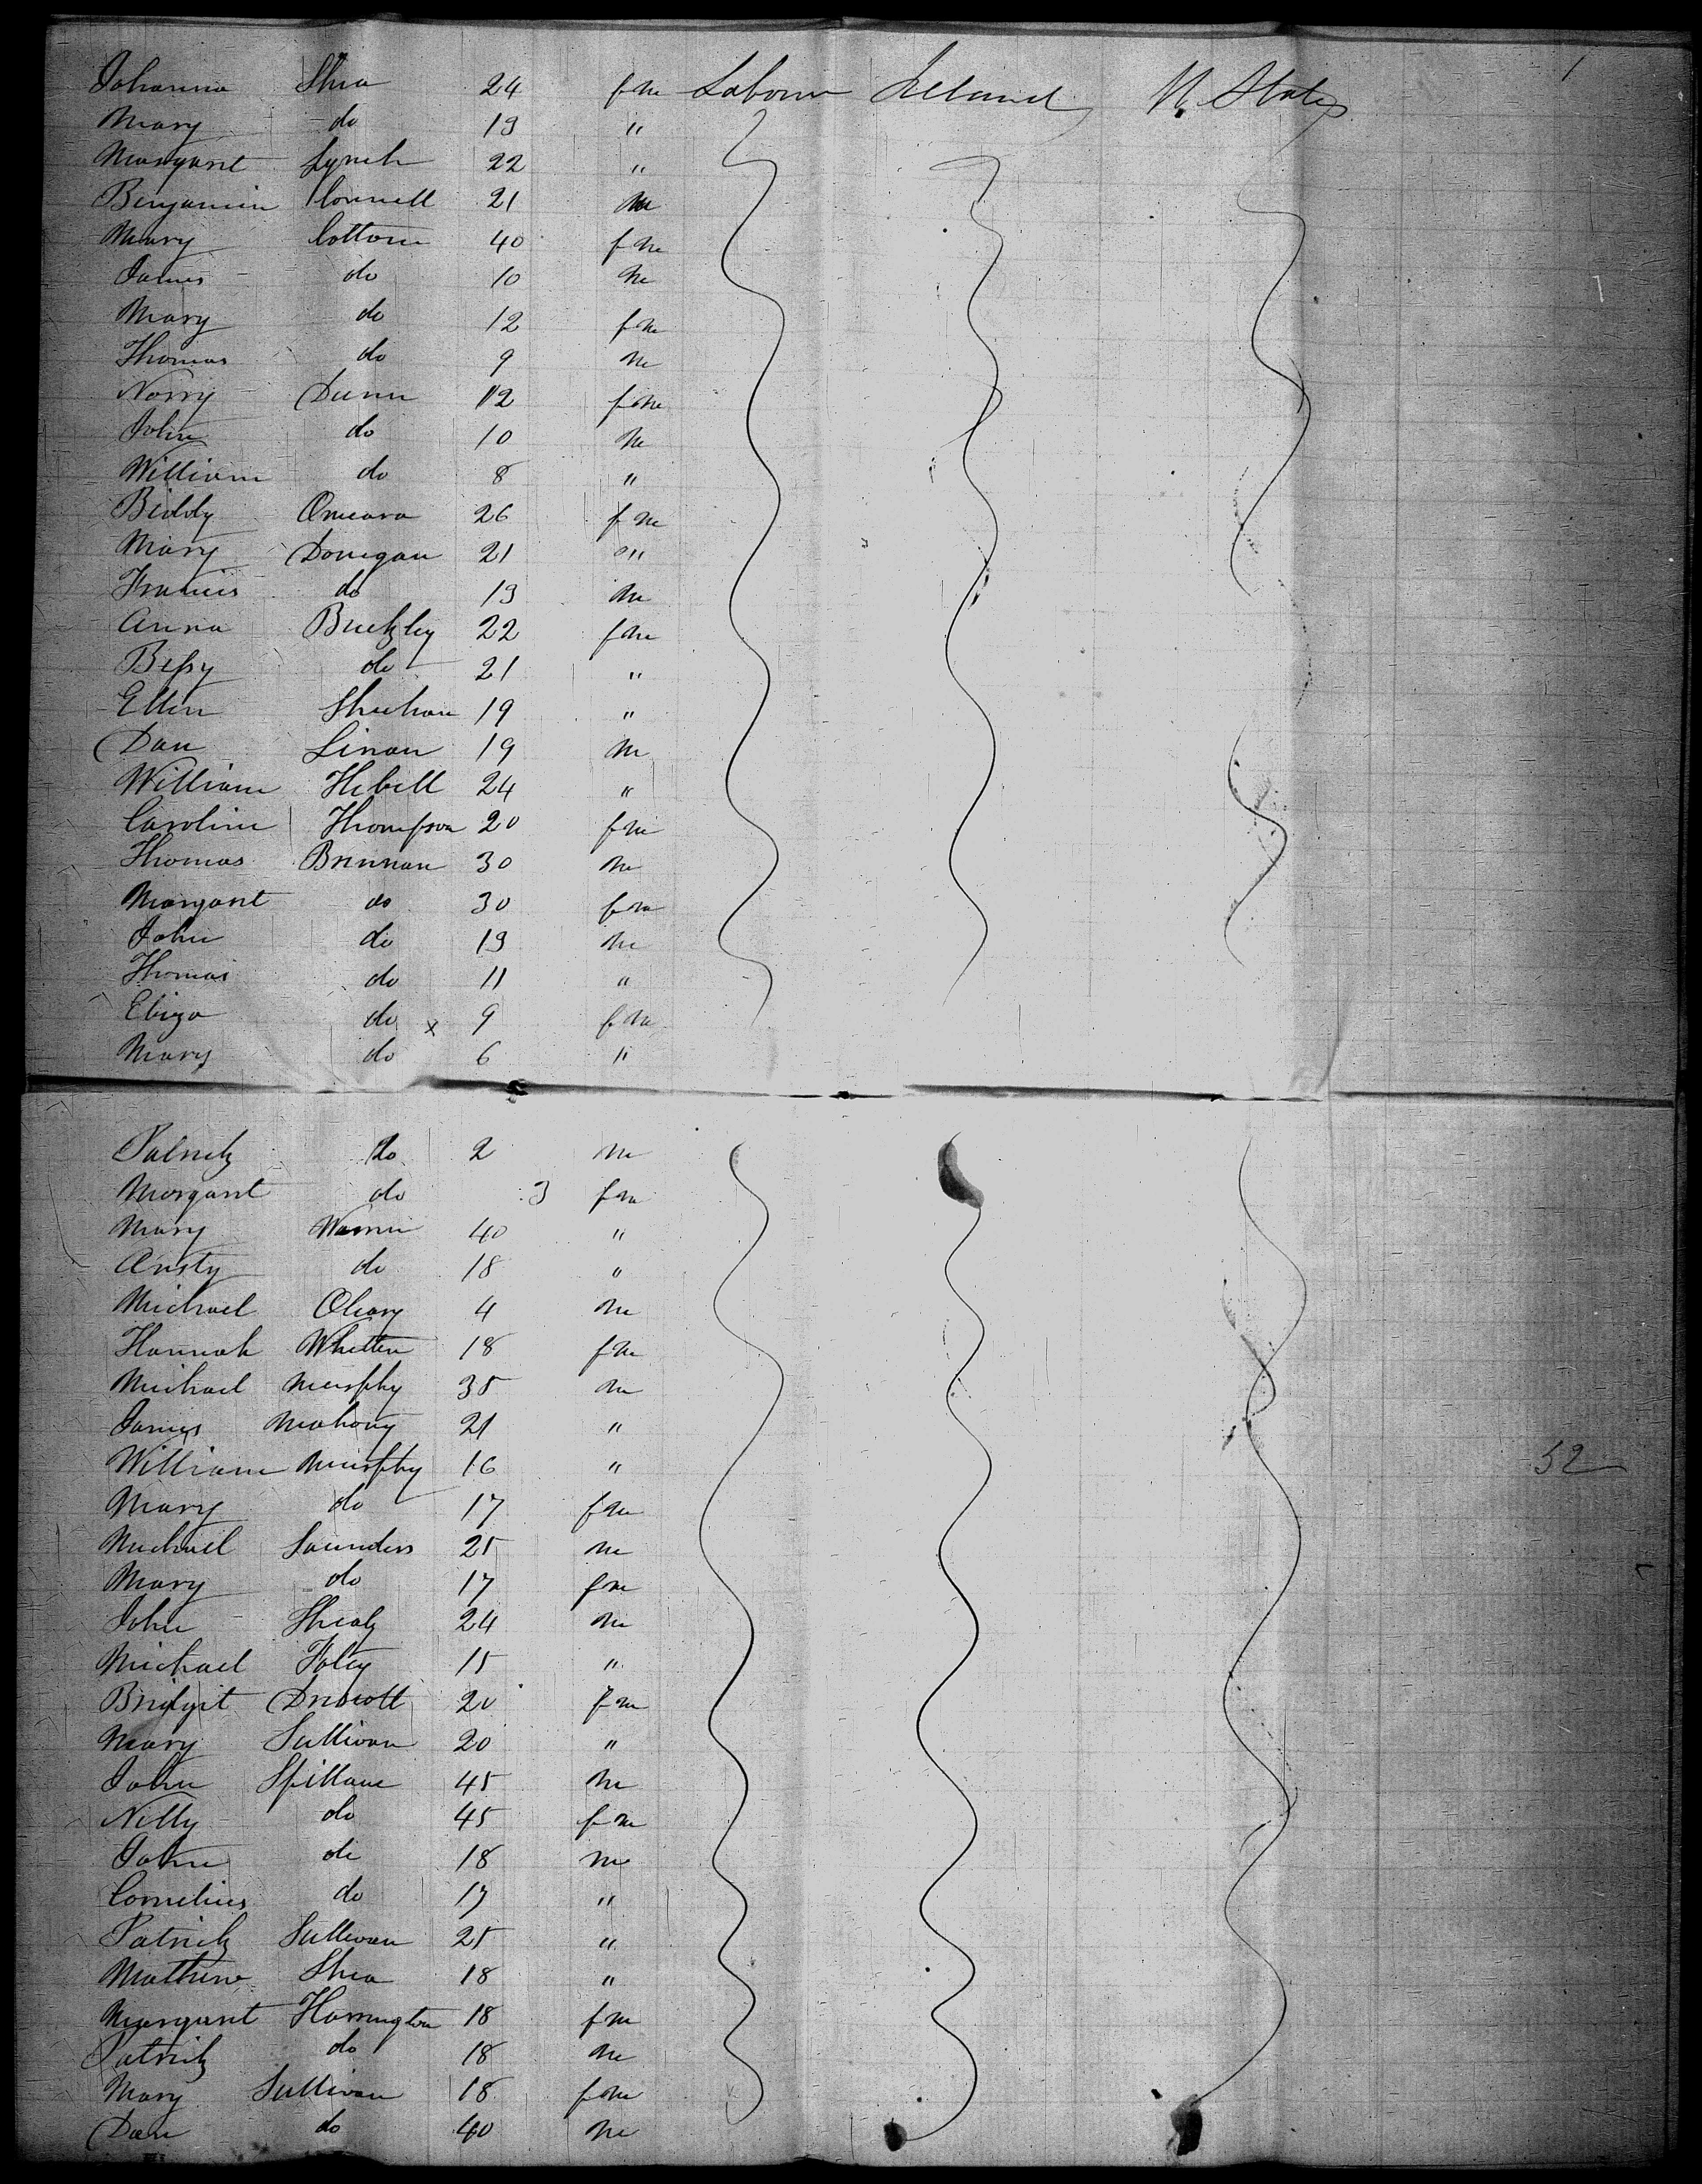 Johanna Shea 24 fm Labour Ireland U. States
Mary do 19 "
Margaret Lynch 22 "
Benjamin Connell 21 m
Mary Cottom 40 fm
James do 10 m
Mary do 12 fm
Thomas do 9 m
Norry Dunn 12 fm
John do 10 m
William do 8 "
Biddy Omeara 26 fm
Mary Donegan 21 "
Francis do 13 m
Anna Buckley 22 fm
Bessy do 21 "
Ellen Sheehan 19 "
Dan Linan 19 m
William Hebill 24 "
Caroline Thompson 20 fm
Thomas Brennan 30 m
Margaret do 30 fm
John do 13 m
Thomas do 11 "
Eliza do x 9 fm
Mary do 6 "
Patrick do 2 m
Margaret do 3 fm
Mary Warren 40 "
Ansty do 18 "
Michael Oleary 4 m
Hannah Whitten 18 fm
Michael Murphy 35 m
James Mahony 21 "
William Murphy 16 " 52
Mary do 17 fm
Michael Saunders 25 m
Mary do 17 fm
John Shealy 24 m
Michael Foley 15 "
Bridget Driscoll 20 fm
Mary Sullivan 20 "
John Spillane 45 m
Nelly do 45 fm
John do 18 m
Cornelius do 17 "
Patrick Sullivan 25 "
Mathew Shea 18 "
Margaret Harrington 18 fm
Patrick do 18 m
Mary Sullivan 18 fm
Dan do 40 m